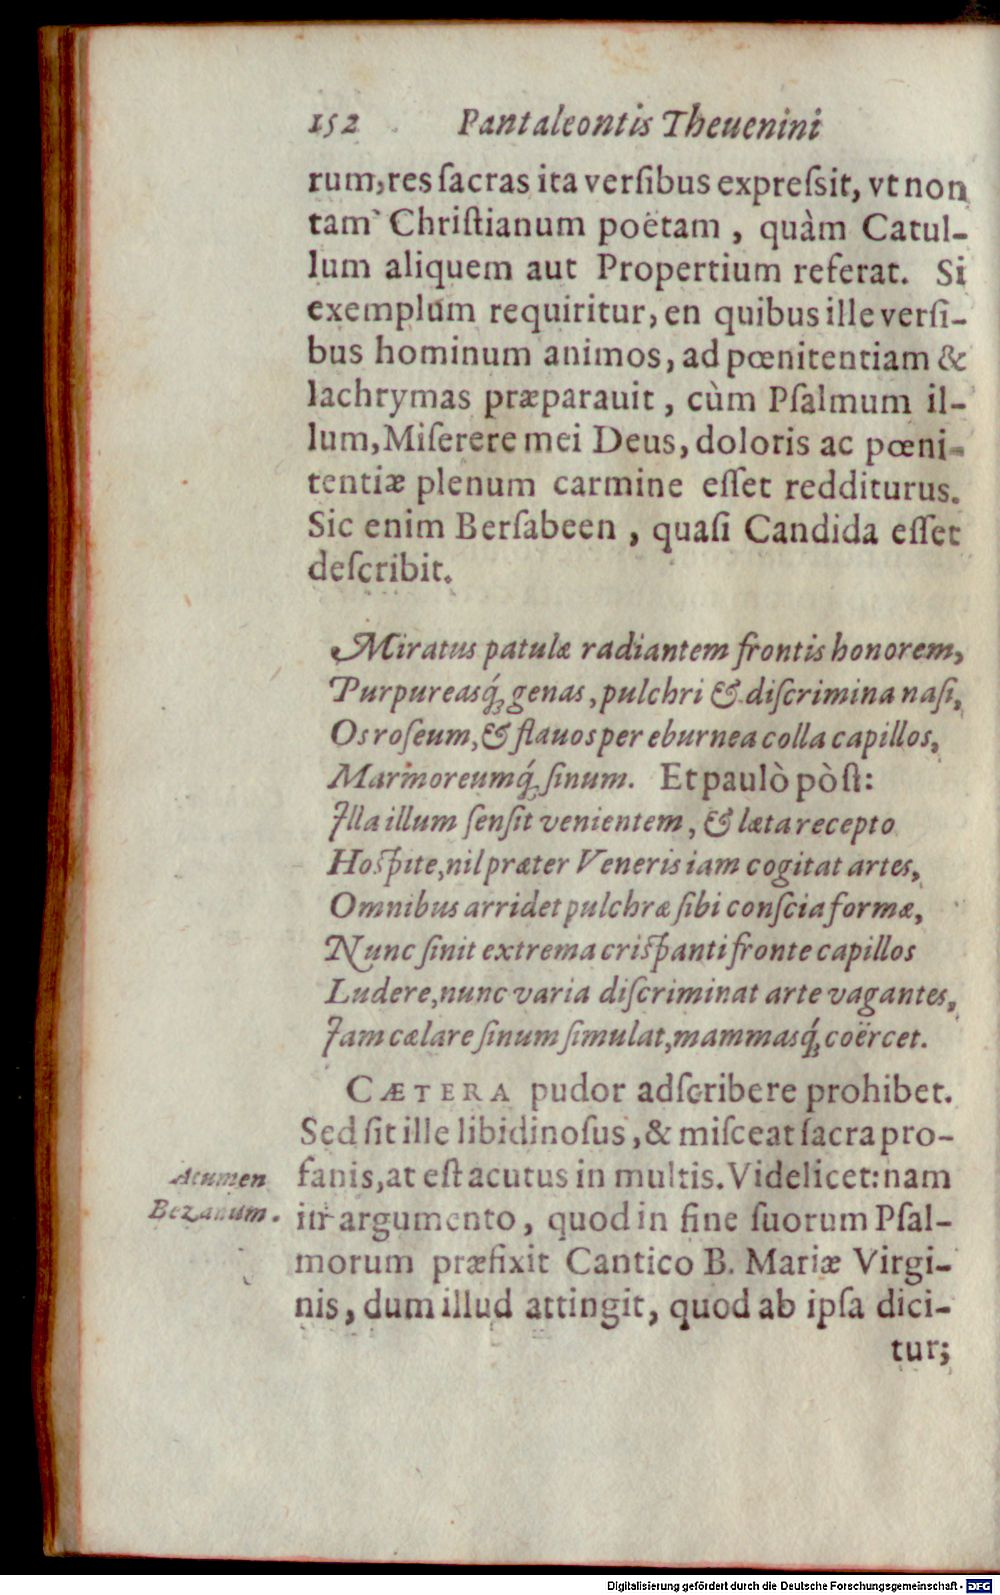 152 Pantaleontis Theuenini
rum, res ſacras ita verſibus expreſsit, vt non
tam Chriſtianum poëtam, quàm Catul-
lum aliquem aut Propertium referat. Si
exemplum requiritur, en quibus ille verſi-
bus hominum animos, ad pœnitentiam &
lachrymas præparauit, cùm Pſalmum il-
lum, Miſerere mei Deus, doloris ac pœni-
tentiæ plenum carmine eſſet redditurus.
Sic enim Berſabeen, quaſi Candida eſſet
deſcribit.
Miratus patulæ radiantem frontis honorem,
Purpureasq́; genas, pulchri & diſcrimina naſi,
Os roſeum, & flauos per eburnea colla capillos,
Marmoreumq́; ſinum. Et paulò pòſt:
Illa illum ſenſit venientem, & læta recepto
Hoſpite, nil præter Veneris iam cogitat artes,
Omnibus arridet pulchræ ſibi conſcia formæ,
Nunc ſinit extrema criſpanti fronte capillos
Ludere, nunc varia diſcriminat arte vagantes,
Iam cælare ſinum ſimulat, mammasq́; coërcet.
CÆTERA pudor adſcribere prohibet.
Sed ſit ille libidinoſus, & miſceat ſacra pro-
Acumen
Bezanum.
fanis, at eſt acutus in multis. Videlicet: nam
in argumento, quod in fine ſuorum Pſal-
morum præfixit Cantico B. Mariæ Virgi-
nis, dum illud attingit, quod ab ipſa dici-
tur;
Digitalisierung gefördert durch die Deutsche Forschungsgemeinschaft - DFG